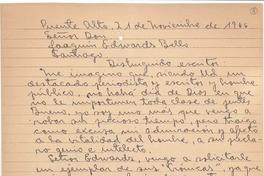 Puente Alto, 21 de Noviembre de 1966
Señor Don
Joaquin Edwards Bello
Santiago
Distinguido escritor
Me imagino que, siendo Ud. un
destacado periodista y escritor y hombre
público, no habrá día de Dios en que
no le importunen toda clase de gentes
Bueno, yo soy uno más que vengo a
robar su precioso tiempo, pero traigo
como excusa mi admiración y afecto
a la vitalidad del hombre, a su
genio e intelecto.
Señor Edwards, vengo a solicitarle
un ejemplar de sus "Crónicas", ya que